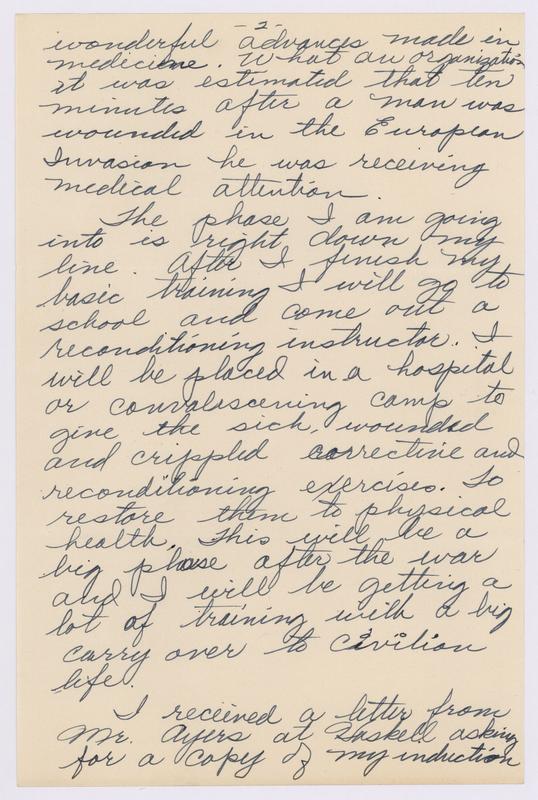 -2-
wonderful advances made in
medicine. What an organization
it was estimated that ten
minutes after a man was
wounded in the European
Invasion he was receiving
medical attention.
The phase I am going
into is right down my
line. After I finish my
basic training I will go to
school and come out a
reconditioning instructor. I
will be placed in a hospital
or convalascening camp to
give the sick, wounded
and crippled corrective and
reconditioning exercises. To
restore them to physical
health. This will be a
big phase after the war
and I will be getting a
lot of training with a big
carry over to civilian
life.
I received a letter from
Mr. Ayers at Haskell asking
for a copy of my induction